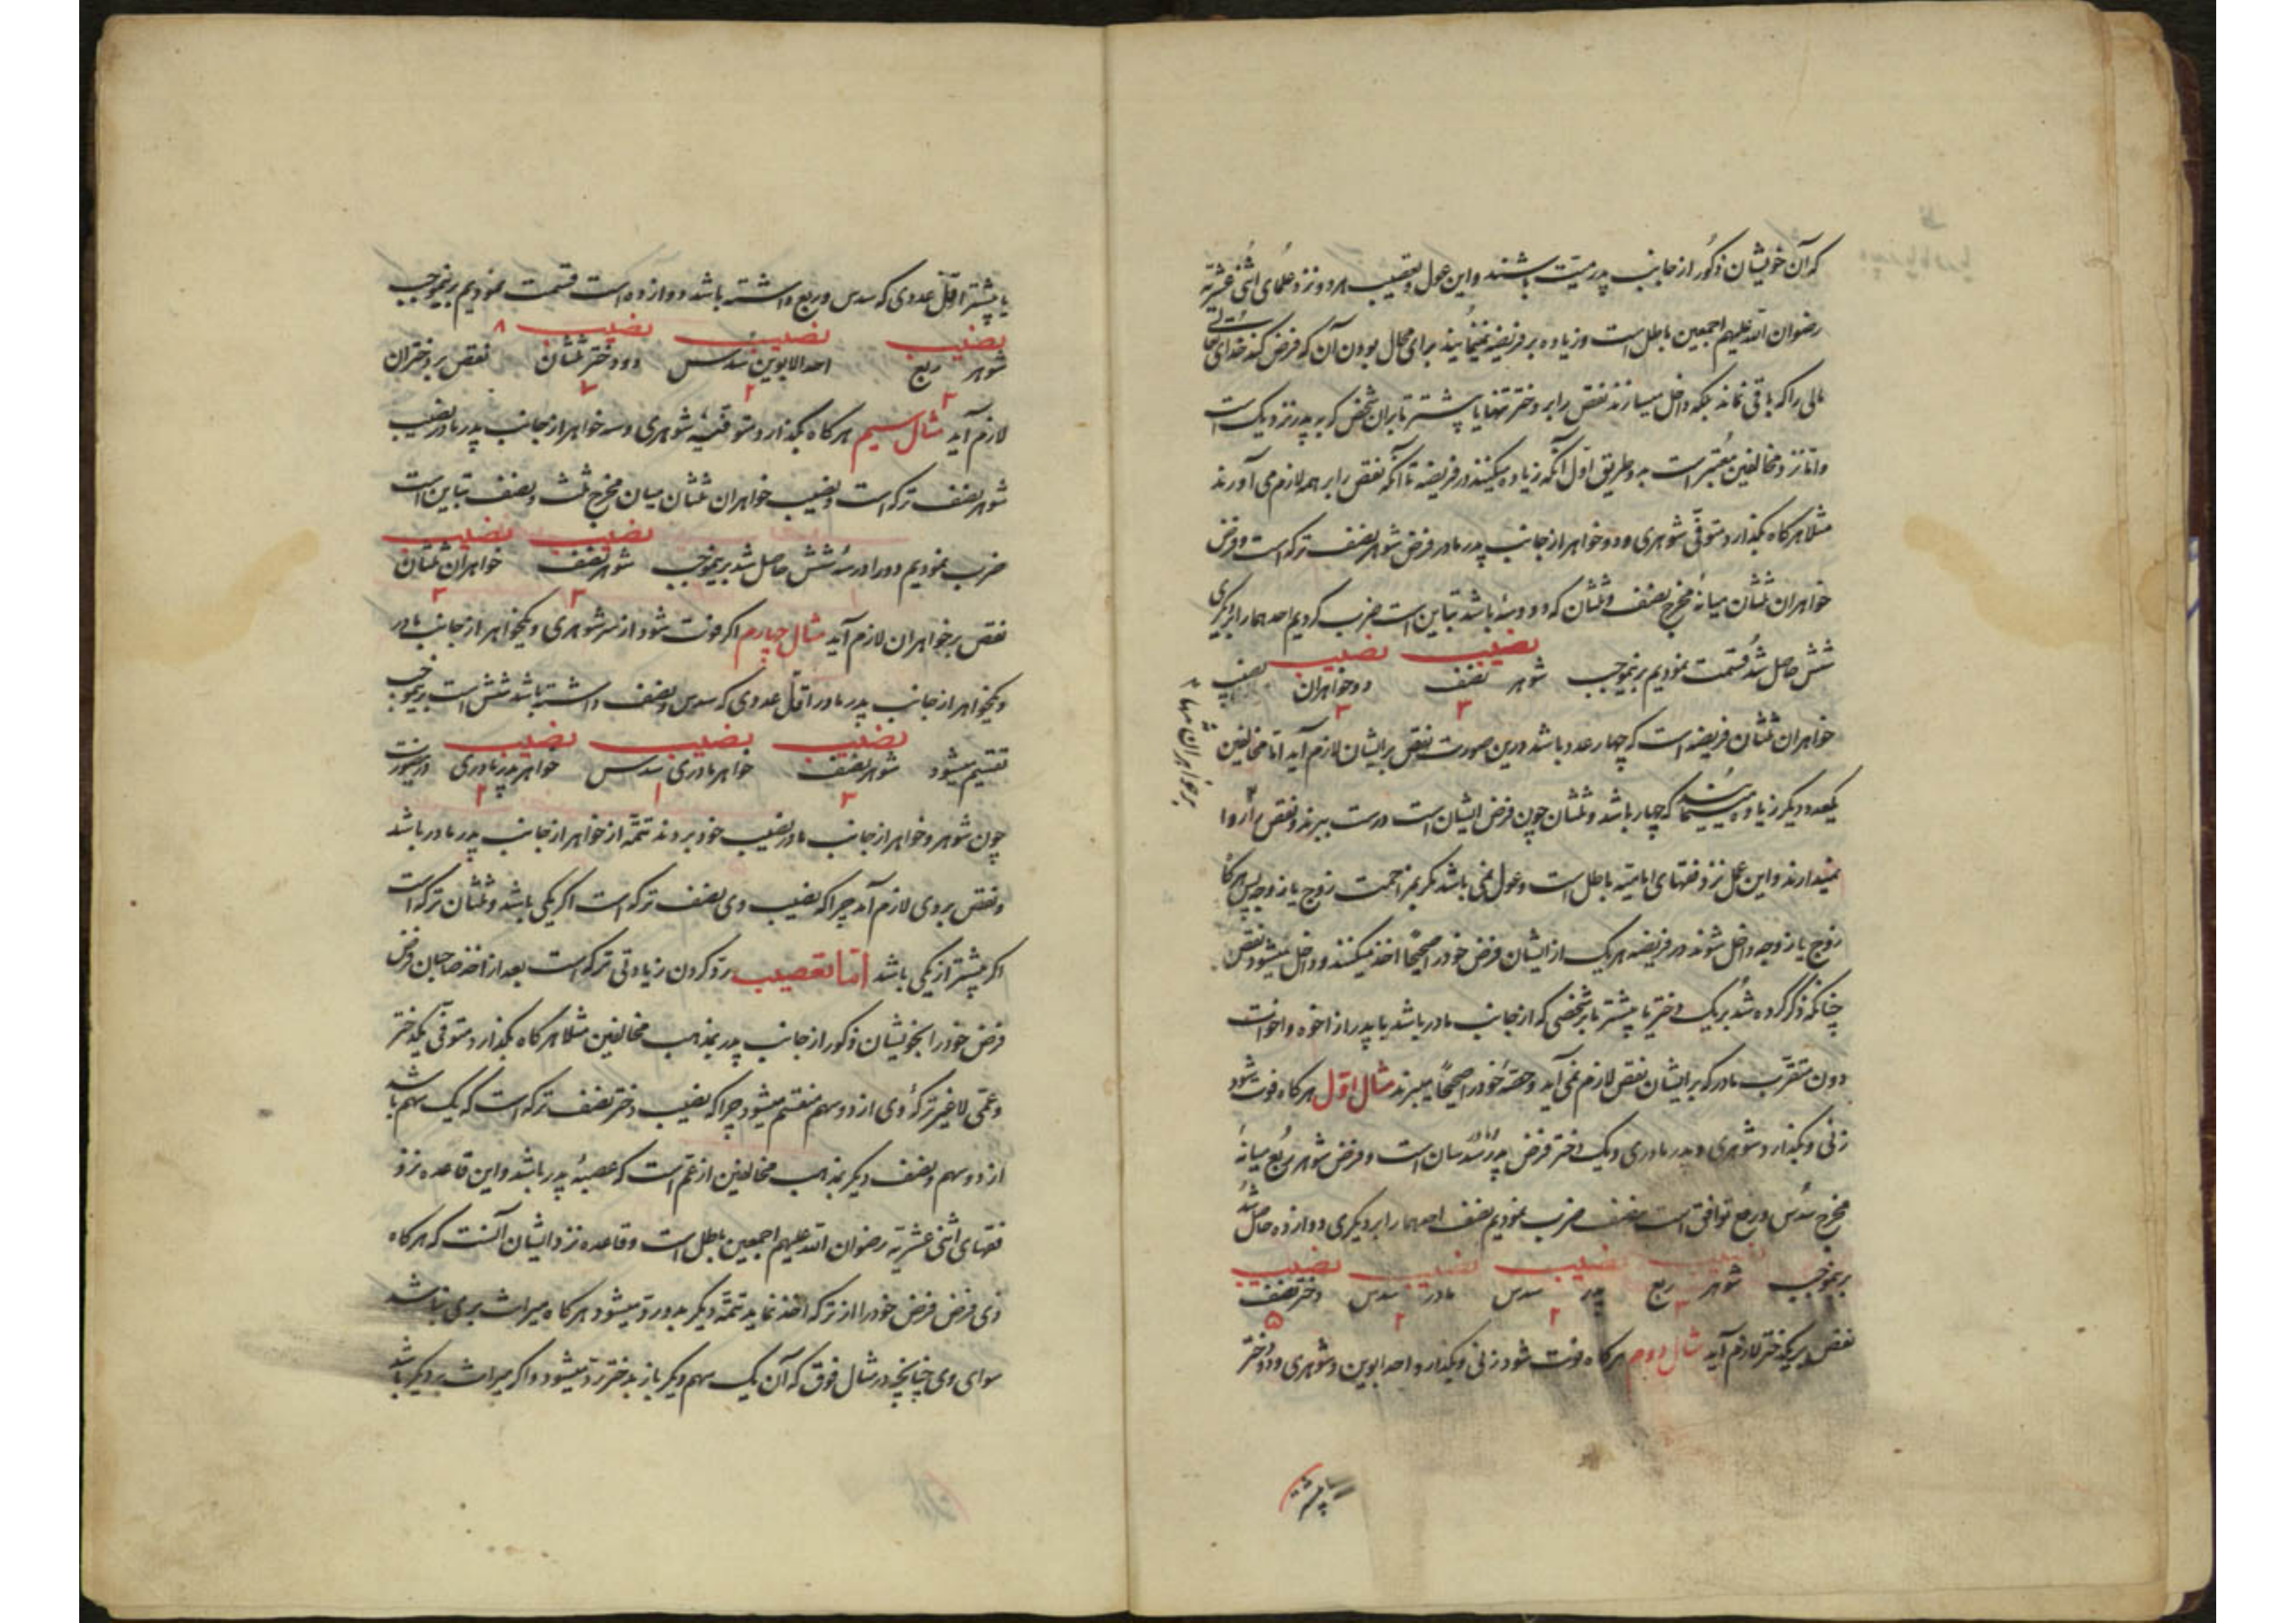 که آن خویشان ذکور از جانب پدر میت باشند و این عول و تعصیب هر دو نزد علمای اثنی عشریه
رضوان الله علیهم اجمعین باطل است و زیاده بر فریضه نمینمایند برای محال بودن آن که فرض کند خدای تعالی
مالی را که باقی نماند بلکه داخل میسازند نقص را بر دختر تنها یا بیشتر یا بر آن شخص که به پدر نزدیک است
و اما نزد مخالفین معتبر است به دو طریق اول آنکه زیاده میکنند در فریضه تا آنکه نقص را بر همه لازم می آورند
مثلا هرکاه بکذارد متوفی شوهری و دو خواهر از جانب پدر مادر فرض شوهر نصف ترکه است و فرض
خواهران ثلثان میانهٔ مخرج نصف و ثلثان که دو و سه باشد تباین است ضرب کردیم احدهما را بر دیکری
شش حاصل شد قسمت نمودیم برینموجب شوهر نصف دو خواهران نصیب
نصیب نصیب
۳ ۳
خواهران ثلثان فریضه است که چهار عدد باشد درین صورت نقص بر ایشان لازم آید اما مخالفین
یکعدد دیکر زیاده مینمایند که چهار باشد و ثلثان چون فرض ایشان است درست ببرند و نقص را روا
بر خواهران تنها
نمیدارند و این عمل نزد فقهای امامیه باطل است و عول نمی باشد مکر بمزاحمت زوج یا زوجه پس هرکاه
زوج یا زوجه داخل شوند در فریضه هر یک از ایشان فرض خود را صحیحا اخذ میکنند و داخل میشود نقص
چنانکه ذکر کرده شد بر یک دختر یا بیشتر یا بر شخصی که از جانب مادر باشد یا پدر از اخوه و اخوات
دون متقرب مادر که بر ایشان نقص لازم نمی آید و حصهٔ خود را صحیحا میبرند مثال اول هرکاه فوت شود
زنی و بکذارد شوهری و پدر مادری و یک دختر فرض پدر مادر سدسان است و فرض شوهر ربع میانهٔ
مخرج سدس و ربع توافق است بنصف ضرب نمودیم نصف احدهما را بر دیکری دوازده حاصل شد
نصیب نصیب نصیب نصیب
برینموجب شوهر ربع پدر سدس مادر سدس دختر نصف
۳ ۲ ۲ ۵
نقص بر یکدختر لازم آید مثال دوم هرکاه فوت شود زنی و بکذارد احد ابوین و شوهری و دو دختر
یا بیشتر
یا بیشتر اقل عددی که سدس و ربع داشته باشد دوازده است قسمت نمودیم برینموجب
نصیب نصیب نصیب ۸
شوهر ربع احد الابوین سدس دو دختر ثلثان نقص بر دختران
۳ ۲ ۷
لازم آید مثال سیم هرکاه بکذارد متوفیه شوهری و سه خواهر از جانب پدر مادر نصیب
شوهر نصف ترکه است و نصیب خواهران ثلثان میان مخرج ثلث و نصف تباین است
نصیب نصیب
ضرب نمودیم دو را در سه شش حاصل شد برینموجب شوهر نصف خواهران ثلثان
۳ ۳
نقص بر خواهران لازم آید مثال چهارم اکر فوت شود از سر شوهری و یکخواهر از جانب مادر
و یکخواهر از جانب پدر مادر اقل عددی که سدس و نصف داشته باشد شش است برینموجب
نصیب نصیب نصیب
تقسیم میشود شوهر نصف خواهر مادری سدس خواهر پدر مادری درینصورت
۳ ۱ ۲
چون شوهر و خواهر از جانب مادر نصیب خود بردند تتمه از خواهر از جانب پدر مادر باشد
و نقص بر وی لازم آید چرا که نصیب وی نصف ترکه است اکر یکی باشد و ثلثان ترکه است
اکر بیشتر از یکی باشد اما تعصیب رد کردن زیادتی ترکه است بعد از اخذ صاحبان فرض
فرض خود را بخویشان ذکور از جانب پدر بمذهب مخالفین مثلا هرکاه بکذارد متوفی یکدختر
و عمی لاغیر ترکهٔ وی از دو سهم منقسم میشود چرا که نصیب دختر نصف ترکه است که یک سهم باشد
از دو سهم و نصف دیکر بمذهب مخالفین از عم است که عصبهٔ پدر باشد و این قاعده نزد
فقهای اثنی عشریه رضوان الله علیهم اجمعین باطل است و قاعده نزد ایشان آنست که هرکاه
ذی فرض فرض خود را از ترکه اخذ نماید تتمه دیکر بدو رد میشود هرکاه میراث بری نباشد
سوای وی چنانچه در مثال فوق که آن یک سهم دیکر باز بدختر رد میشود و اکر میراث بر دیکر باشد